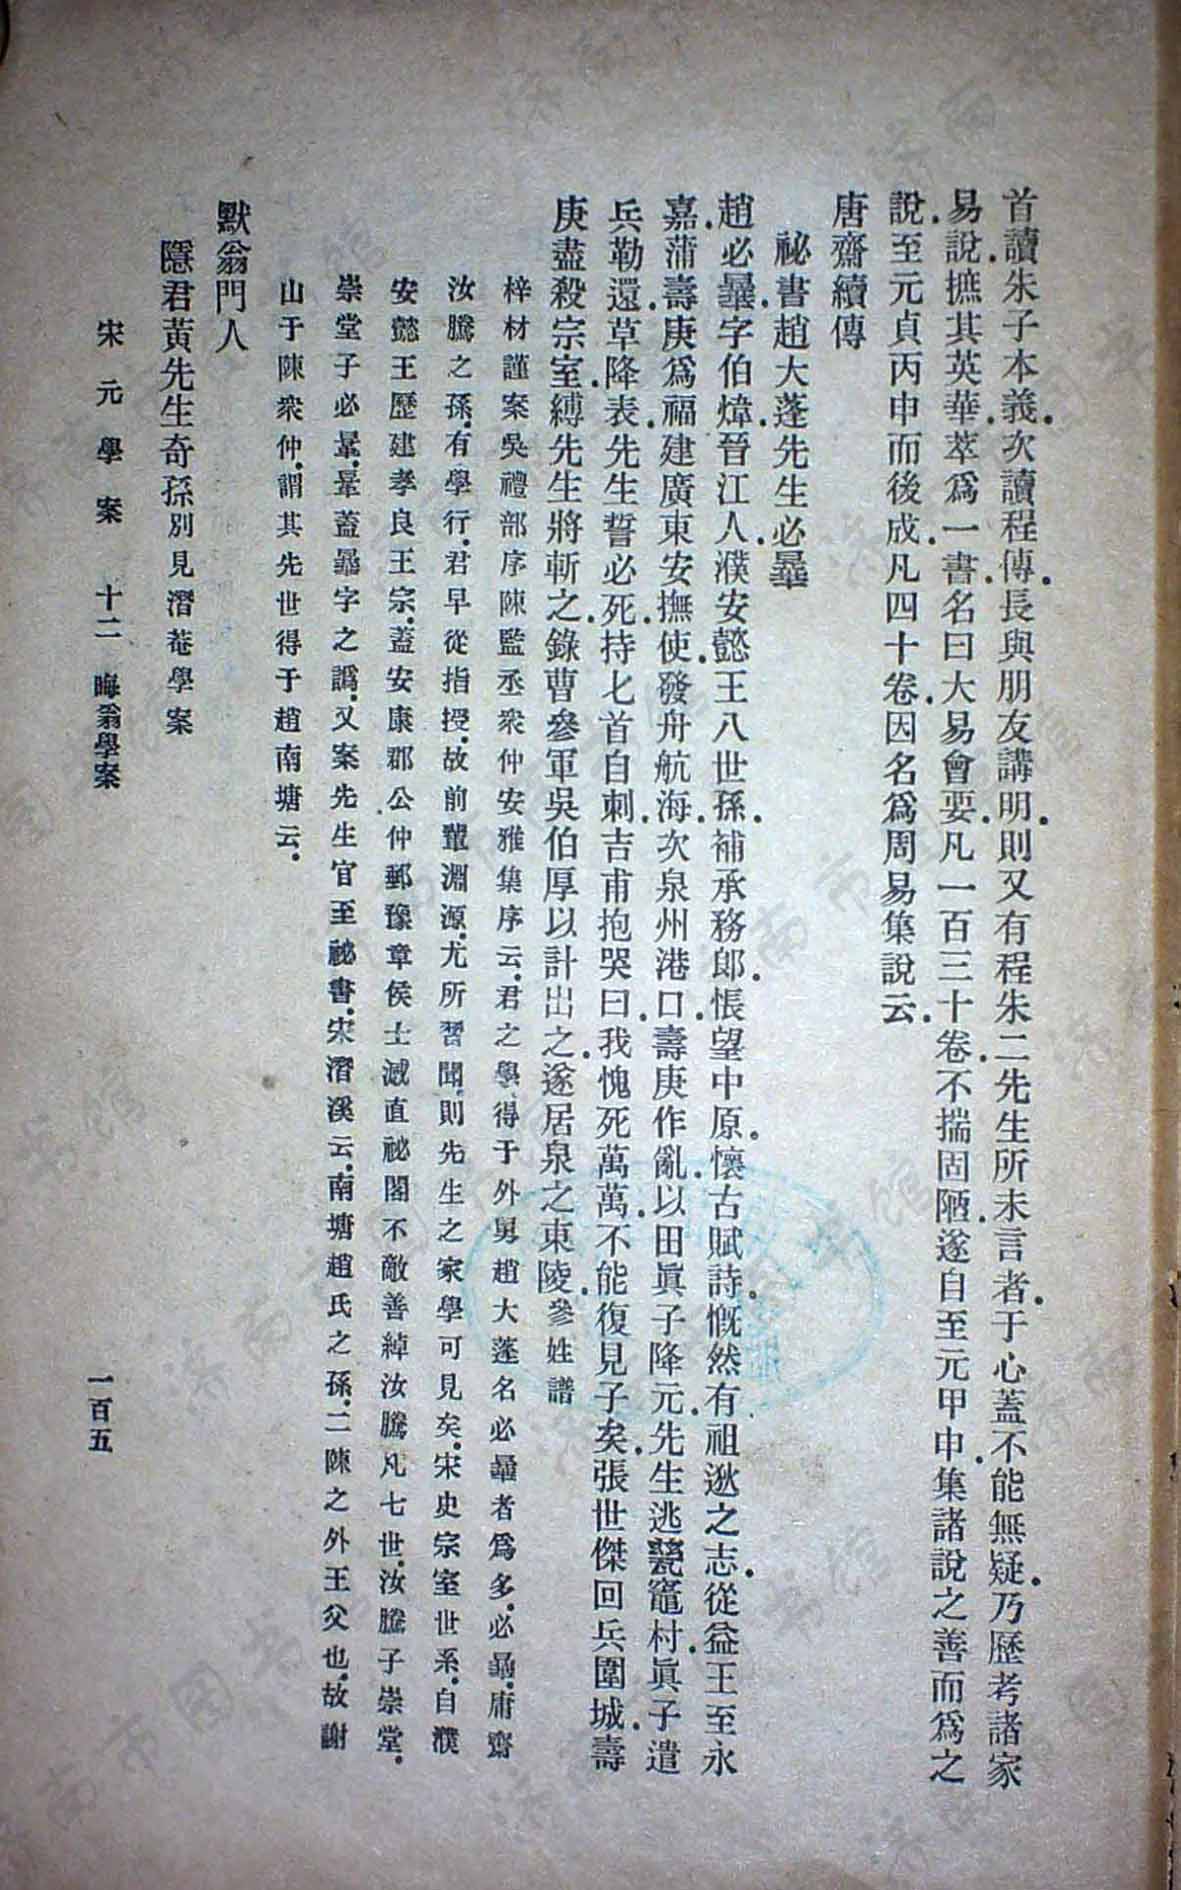 首讀朱子本義.次讀程傳.長與朋友講明.則又有程朱二先生所未言者.于心蓋不能無疑.乃歷考諸家
易說.摭其英華.萃爲一書.名曰大易會要.凡一百三十卷.不揣固陋.遂自至元甲申.集諸說之善而爲之
說.至元貞丙申而後成.凡四十卷.因名爲周易集說云.
唐齋續傳
祕書趙大蓬先生必𣋌
趙必𣋌.字伯煒.晉江人.濮安懿王八世孫.補承務郎.悵望中原.懷古賦詩.慨然有祖逖之志.從益王至永
嘉.蒲壽庚爲福建廣東安撫使.發舟航海.次泉州港口.壽庚作亂.以田眞子降元.先生逃甆竈村.眞子遣
兵勒還.草降表.先生誓必死.持匕首自刺.吉甫抱哭曰.我愧死萬萬.不能復見子矣.張世傑回兵圍城.壽
庚盡殺宗室.縛先生將斬之.錄曹參軍吳伯厚以計出之.遂居泉之東陵.參姓譜
梓材謹案吳禮部序陳監丞衆仲安雅集序云.君之學.得于外舅趙大蓬名必𣋌者爲多.必𣋌.庸齋
汝騰之孫.有學行.君早從指授.故前輩淵源.尤所習聞.則先生之家學可見矣.宋史宗室世系.自濮
安懿王歷建孝良王宗.蓋安康郡公仲郵豫章侯士滅直祕閣不敵善綽汝騰凡七世.汝騰子崇堂.
崇堂子必暈.暈蓋𣋌字之譌.又案先生官至祕書.宋潛溪云.南塘趙氏之孫.二陳之外王父也.故謝
山于陳衆仲.謂其先世得于趙南塘云.
默翁門人
隱君黃先生奇孫別見潛菴學案
宋元學案 十二 晦翁學案 一百五